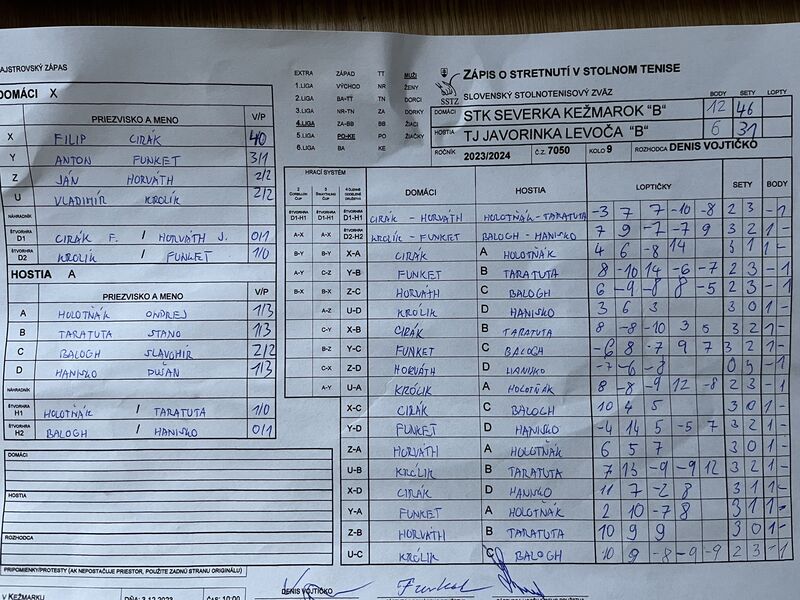 AJSTROVSKÝ ZÁPAS
DOMÁCI X
PRIEZVISKO A MENO V/P
X FILIP CIRÁK 4/0
Y ANTON FUNKET 3/1
Z JÁN HORVÁTH 2/2
U VLADIMÍR KROLÍK 2/2
NÁHRADNÍK
ŠTVORHRA D1 CIRÁK F. / HORVÁTH J. 0/1
ŠTVORHRA D2 KROLIK / FUNKET 1/0
HOSTIA A
PRIEZVISKO A MENO V/P
A HOLOTŇÁK ONDREJ 1/3
B TARATUTA STANO 1/3
C BALOGH SLAVOMÍR 2/2
D HANISKO DUŠAN 1/3
NÁHRADNÍK
ŠTVORHRA H1 HOLOTŇÁK / TARATUTA 1/0
ŠTVORHRA H2 BALOGH / HANISKO 0/1
DOMÁCI
HOSTIA
ROZHODCA
PRIPOMIENKY/PROTESTY (AK NEPOSTAČUJE PRIESTOR, POUŽITE ZADNÚ STRANU ORIGINÁLU)
V KEŽMARKU DŇA: 3.12.2023 ČAS: 10:00
DENIS VOJTIČKO
EXTRA ZÁPAD TT MUŽI
1.LIGA VÝCHOD NR ŽENY
2.LIGA BA-TT TN DORCI
3.LIGA NR-TN ZA DORKY
4.LIGA ZA-BB BB ŽIACI
5.LIGA PO-KE PO ŽIAČKY
6.LIGA BA KE
SSTZ
ZÁPIS O STRETNUTÍ V STOLNOM TENISE
SLOVENSKÝ STOLNOTENISOVÝ ZVÄZ
BODY SETY LOPTY
DOMÁCI STK SEVERKA KEŽMAROK "B" 12 46
HOSTIA TJ JAVORINKA LEVOČA "B" 6 31
ROČNÍK 2023/2024 Č.Z. 7050 KOLO 9 ROZHODCA DENIS VOJTIČKO
HRACÍ SYSTÉM
DOMÁCI HOSTIA LOPTIČKY SETY BODY
ŠTVORHRA D1-H1 ŠTVORHRA D1-H1 ŠTVORHRA D1-H1 CIRÁK - HORVÁTH HOLOTŇÁK - TARATUTA -3 7 7 -10 -8 2 3 - 1
A-X A-X ŠTVORHRA D2-H2 KROLIK - FUNKET BALOGH - HANISKO 7 9 -7 -7 9 3 2 1 -
B-Y B-Y X-A CIRÁK A HOLOTŇÁK 4 6 -8 14 3 1 1 -
A-Y C-Z Y-B FUNKET B TARATUTA 8 -10 14 -6 -7 2 3 - 1
B-X B-X Z-C HORVÁTH C BALOGH 6 -9 -8 8 -5 2 3 - 1
A-Z U-D KROLIK D HANISKO 3 6 3 3 0 1 -
C-Y X-B CIRÁK B TARATUTA 8 -8 -10 3 5 3 2 1 -
B-Z Y-C FUNKET C BALOGH -6 8 -7 9 7 3 2 1 -
C-X Z-D HORVÁTH D HANISKO -7 -6 -8 0 3 - 1
A-Y U-A KROLIK A HOLOTŇÁK 8 -8 -9 12 -8 2 3 - 1
X-C CIRÁK C BALOGH 10 4 5 3 0 1 -
Y-D FUNKET D HANISKO -4 14 5 -5 7 3 2 1 -
Z-A HORVÁTH A HOLOTŇÁK 6 5 7 3 0 1 -
U-B KROLIK B TARATUTA 7 13 -9 -9 12 3 2 1 -
X-D CIRÁK D HANISKO 11 7 -2 8 3 1 1 -
Y-A FUNKET A HOLOTŇÁK 2 10 -7 8 3 1 1 -
Z-B HORVÁTH B TARATUTA 10 9 9 3 0 1 -
U-C KROLIK C BALOGH 10 9 -8 -9 -9 2 3 - 1